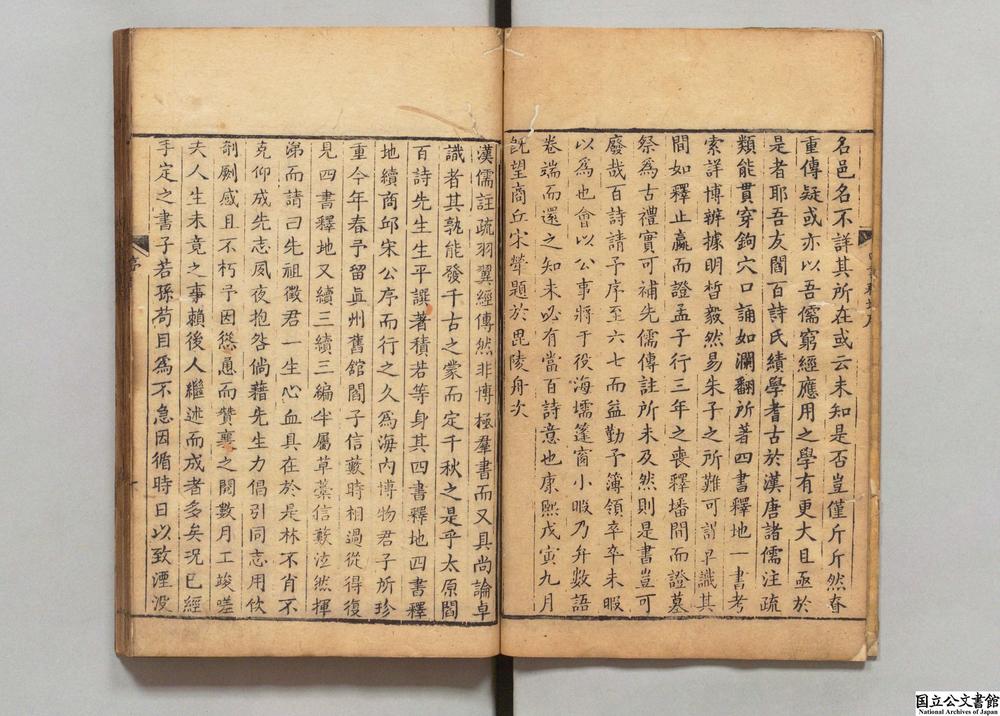 名邑名不詳其所在或云未知是否豈僅斤斤然春
重傳疑或亦以吾儒窮經應用之學有更大且亟於
是者耶吾友閻百詩氏績學耆古於漢唐諸儒注疏
類能貫穿鉤穴口誦如瀾翻所著四書釋地一書考
索詳博辨據明晳毅然易朱子之所難可謂卓識其
間如釋止嬴而證孟子行三年之喪釋墦間而證墓
祭爲古禮實可補先儒傳註所未及然則是書豈可
廢哉百詩請予序至六七而益勤予簿領卒卒未暇
以爲也會以公事將于役海壖篷窗小暇乃弁數語
卷端而還之知未必有當百詩意也康熙戊寅九月
旣望商丘宋犖題於毘陵舟次
漢儒註疏羽翼經傳然非博極羣書而又具尚論卓
識者其孰能發千古之蒙而定千秋之是乎太原閻
百詩先生生平譔著積若等身其四書釋地四書釋
地續商邱宋公序而行之久爲海內博物君子所珍
重今年春予留眞州舊舘閻子信藪時相過從得復
見四書釋地又續三續三編半屬草藁信藪泣然揮
涕而請曰先祖徵君一生心血具在於是林不肖不
克仰成先志夙夜抱咎倘藉先生力倡引同志用佽
剞劂感且不朽予因慫恿而贊襄之閱數月工竣嗟
夫人生未竟之事賴後人繼述而成者多矣況已經
手定之書子若孫苟目爲不急因循時日以致湮没
序
国立公文書館
National Archives of Japan